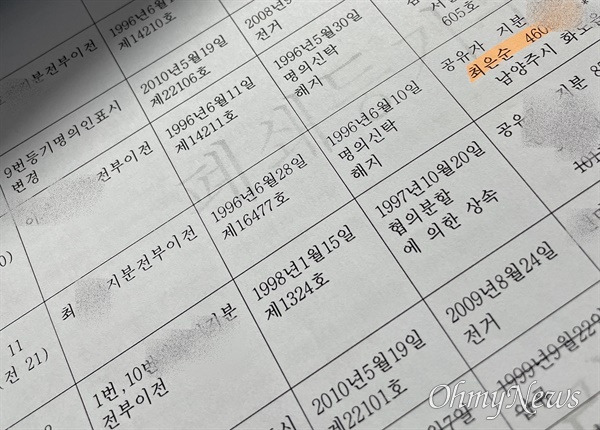 지분전부이전
1996년6월1
제14210호
2008년9
전거
서울
605호
9번등기명의인표시
변경
2010년5월19일
제22106호
1996년5월30일
명의신탁
해지
공유자 지분
최은순 460
남양주시 화도읍
전부이전
1996년6월11일
제14211호
1996년6월10일
명의신탁
해지
공유 지분 8
최 지분전부이전
1996년6월28일
제16477호
1997년10월20일
협의분할
에 의한 상속
101
11
(전 21)
1번,10번 지분
전부이전
1998년1월15일
제1324호
2009년8월24일
전거
2010년5월19일
제22101호
1999년9월22일
OhmyNews